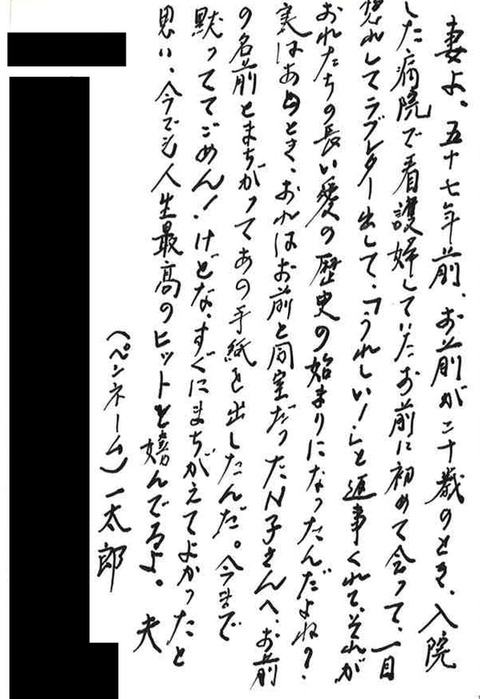 妻よ、五十七年前、お前が二十歳のとき、入院
した病院で看護婦していたお前に初めて会って、一目
惚れしてラブレター出して、「うれしい!」と返事くれて、それが
おれたちの長い愛の歴史の始まりになったんだよね?
実はあのとき、おれはお前と同室だったN子さんへ、お前
の名前とまちがってあの手紙を出したんだ。今まで
黙っててごめん!けどな、すぐにまちがえてよかったと
思い、今でも人生最高のヒットと嬉んでるよ。 夫
(ペンネーム)一太郎